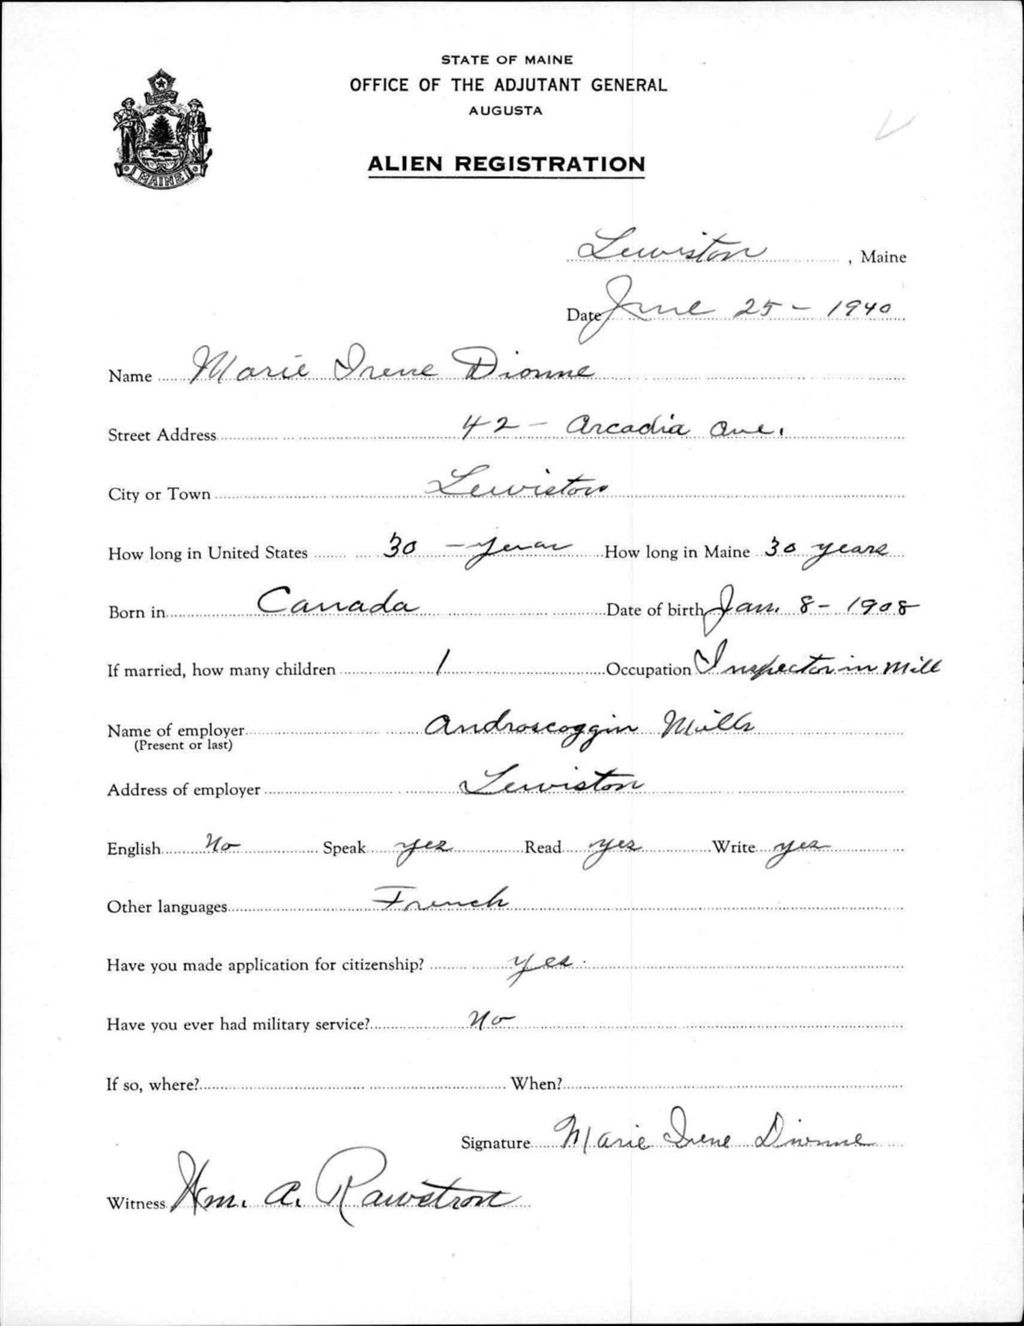 STATE OF MAINE
OFFICE OF THE ADJUTANT GENERAL
AUGUSTA
ALIEN REGISTRATION
MAINE
Lewiston, Maine
Date June 25 - 1940
Name Marie Irene Dionne
Street Address 42 - Arcadia Ave.
City or Town Lewiston
How long in United States 30 - years How long in Maine 30 years
Born in Canada Date of birth Jan. 8 - 1908
If married, how many children 1 Occupation Inspector in Mill
Name of employer Androscoggin Mills
(Present or last)
Address of employer Lewiston
English No Speak yes Read yes Write yes
Other languages French
Have you made application for citizenship? yes.
Have you ever had military service? No
If so, where? When?
Signature Marie Irene Dionne
Witness Wm. A. Rawstron